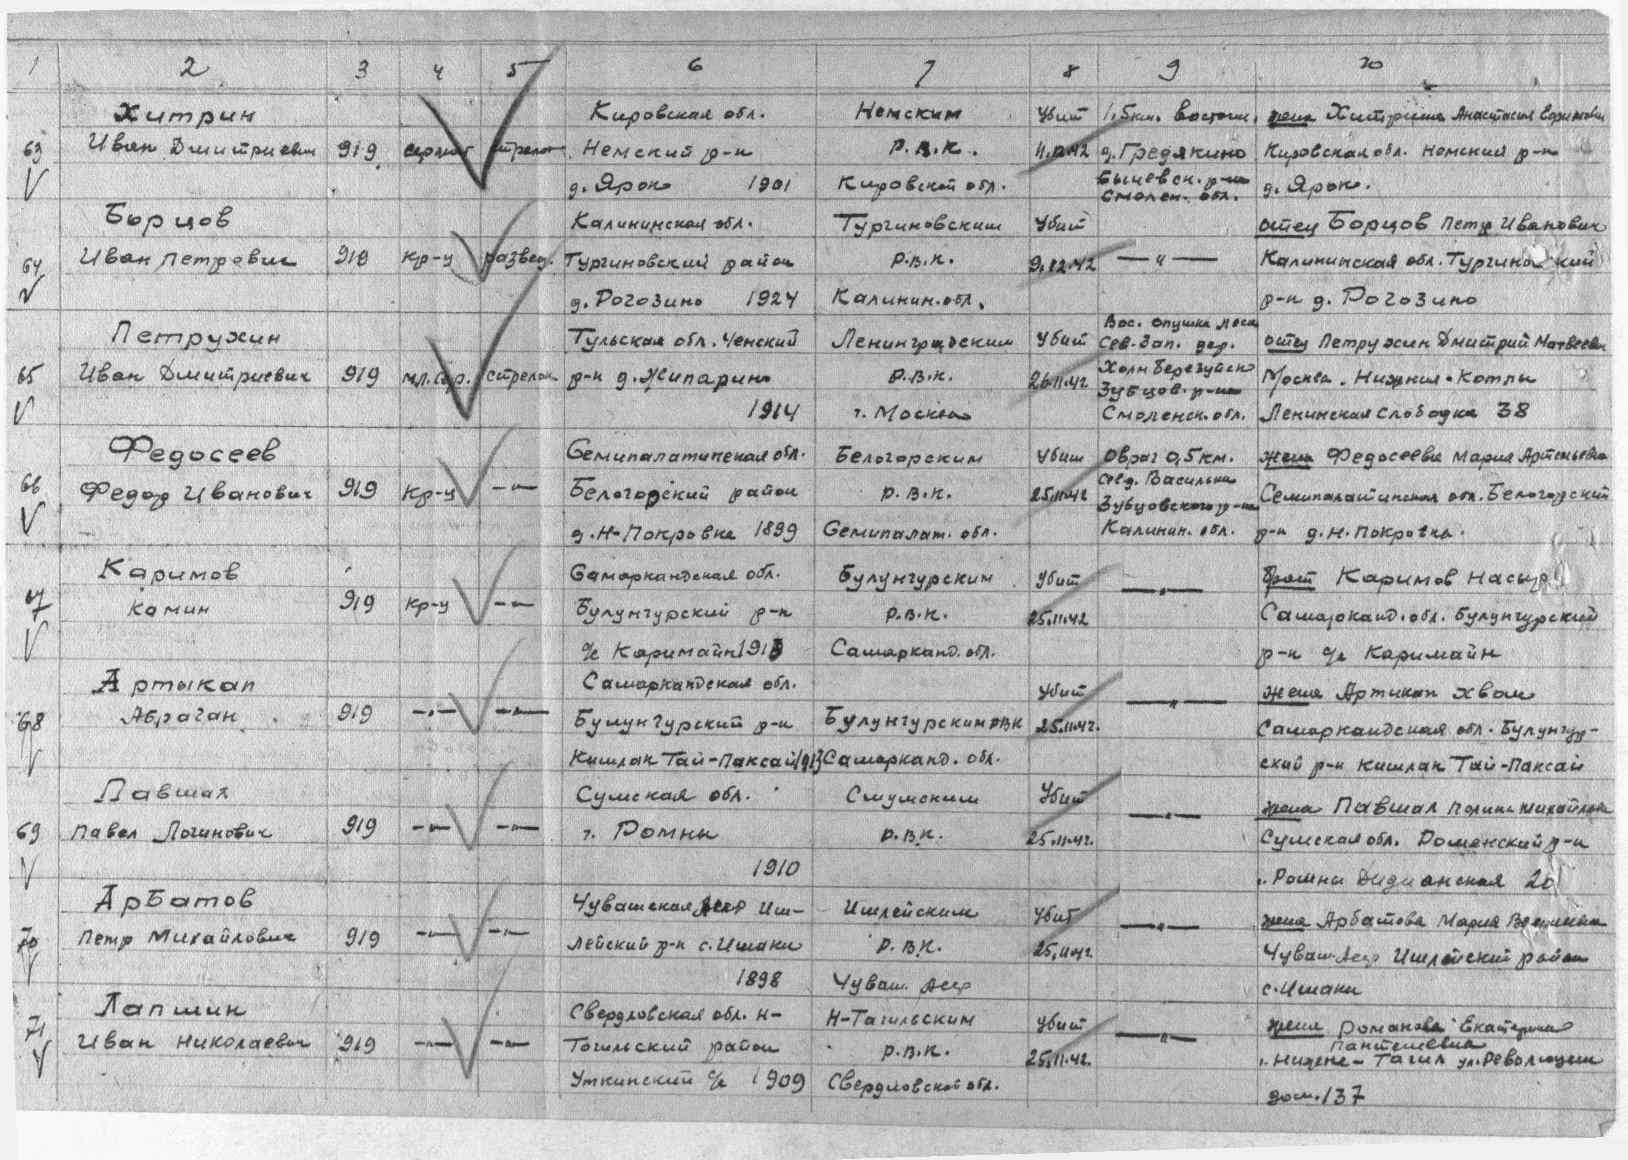 1 2 3 4 5 6 7 8 9 10
63
Хитрин
Иван Дмитриевич
919
сержант
стрелок
Кировская обл.
Немский р-н
д. Ярок 1901
Немским
Р.В.К.
Кировской обл.
Убит
11.12.42
1,5 км. восточн.
д. Гредякино
Сычевск. р-на
Смолен. обл.
жена Хитрина Анастасия Ефимовн
Кировская обл. Немский р-н
д. Ярок.
64
Борцов
Иван Петрович
919
кр-ц
развед.
Калининская обл.
Тургиновский район
д. Рогозино 1924
Тургиновским
Р.В.К.
Калинин. обл.
Убит
9.12.42
— " —
отец Борцов Петр Иванович
Калининская обл. Тургинов кий
р-н д. Рогозино
65
Петрухин
Иван Дмитриевич
919
мл. сер.
стрелок
Тульская обл. Ченский
р-н д. Жипарино
1914
Ленинградским
Р.В.К.
г. Москва
Убит
26.11.42
Вос. опушка леса
Сев.-Зап. дер.
Холм Березуйско
Зубцов. р-на
Смоленск. обл.
отец Петрухин Дмитрий Матвеевич
Москва. Нижния-Котлы
Ленинская Слободка 38
66
Федосеев
Федор Иванович
919
кр-ц
— " —
Семипалатинская обл.
Белогорский район
д. Н-Покровка 1899
Белогорским
Р.В.К.
Семипалат. обл.
Убит
25.11.42
Овраг 0,5 км.
Васильки
Зубцовского р-на
Калинин. обл.
жена Федосеева Мария Артемьевна
Семипалатинская обл. Белогорский
р-н д. Н. Покровка.
67
Каримов
Камин
919
кр-ц
— " —
Самаркандская обл.
Булунгурский р-н
с/с Каримайн 1913
Булунгурским
Р.В.К.
Самарканд. обл.
Убит
25.11.42
— " —
брат Каримов Насыр
Самарканд. обл. Булунгурский
р-н с/с Каримайн
68
Артыкап
Абраган
919
— " —
— " —
Самаркандская обл.
Булунгурский р-н
Кишлак Тай-Паксай 1913
Булунгурским РВК
Самарканд. обл.
Убит
25.11.42.
— " —
жена Артикап Хвал
Самаркандская обл. Булунгур-
ский р-н кишлак Тай-Паксай
69
Павшал
Павел Логинович
919
— " —
— " —
Сумская обл.
г. Ромны
1910
Смумским
Р.В.К.
Убит
25.11.42.
— " —
жена Павшал Полина Михайловн
Сумская обл. Роменский р-н
г. Ромны 20
70
Арбатов
Петр Михайлович
919
— " —
— " —
Чувашская Асср Иш-
лейский р-н с. Ишаки
1898
Ишлейским
Р.В.К.
Чуваш. Асср
Убит
25.11.42.
— " —
жена Арбатова Мария
Чуваш. Асср Ишлейский район
с. Ишаки
71
Лапшин
Иван Николаевич
919
— " —
— " —
Свердловская обл. Н-
Тагильский район
Уткинский с/с 1909
Н-Тагильским
Р.В.К.
Свердловской обл.
Убит
25.11.42.
— " —
жена Романова Екатерина
Пантелевна
г. Нижне-Тагил ул. Революции
дом. 137